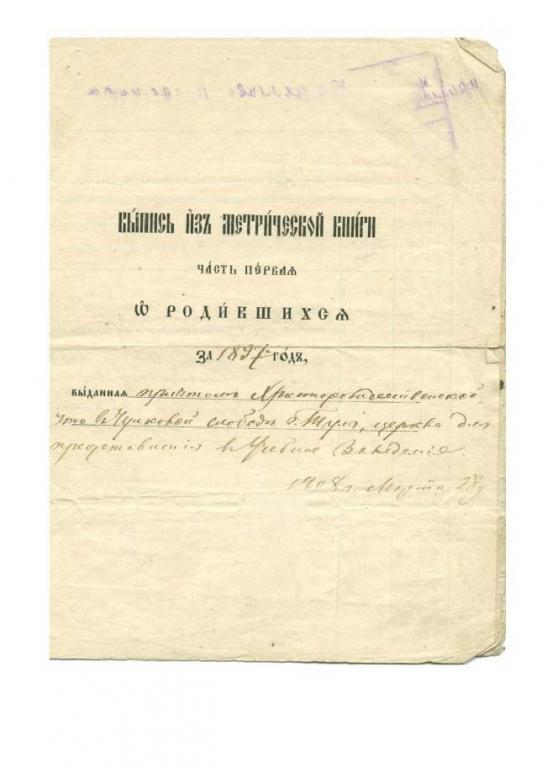 ВЫ́ПИСЬ И҆ЗЪ МЕТРИ́ЧЕСКОЙ КНИ́ГИ
ЧА́СТЬ ПЕ́РВАЯ
Ѡ҆ РОДИ́ВШИХСЯ
ЗА 1897 ГО́ДЪ,
ВЫ́ДАННАЯ причтомъ Христорождественской,
что в Чулковой слободѣ г. Тулы, церкви для
представленія в Учебные Заведенія.
1908 г. 28 д